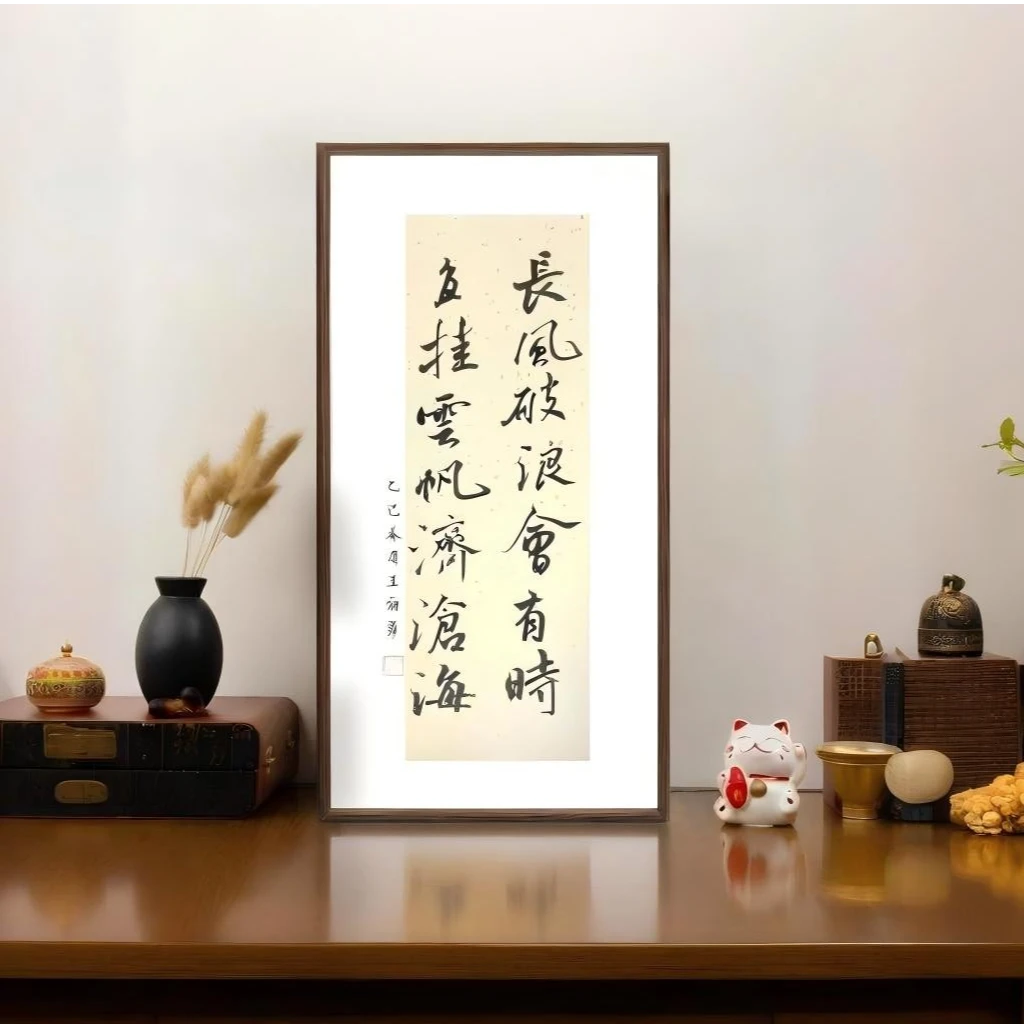 長風破浪會有時
直挂雲帆濟滄海
乙巳春